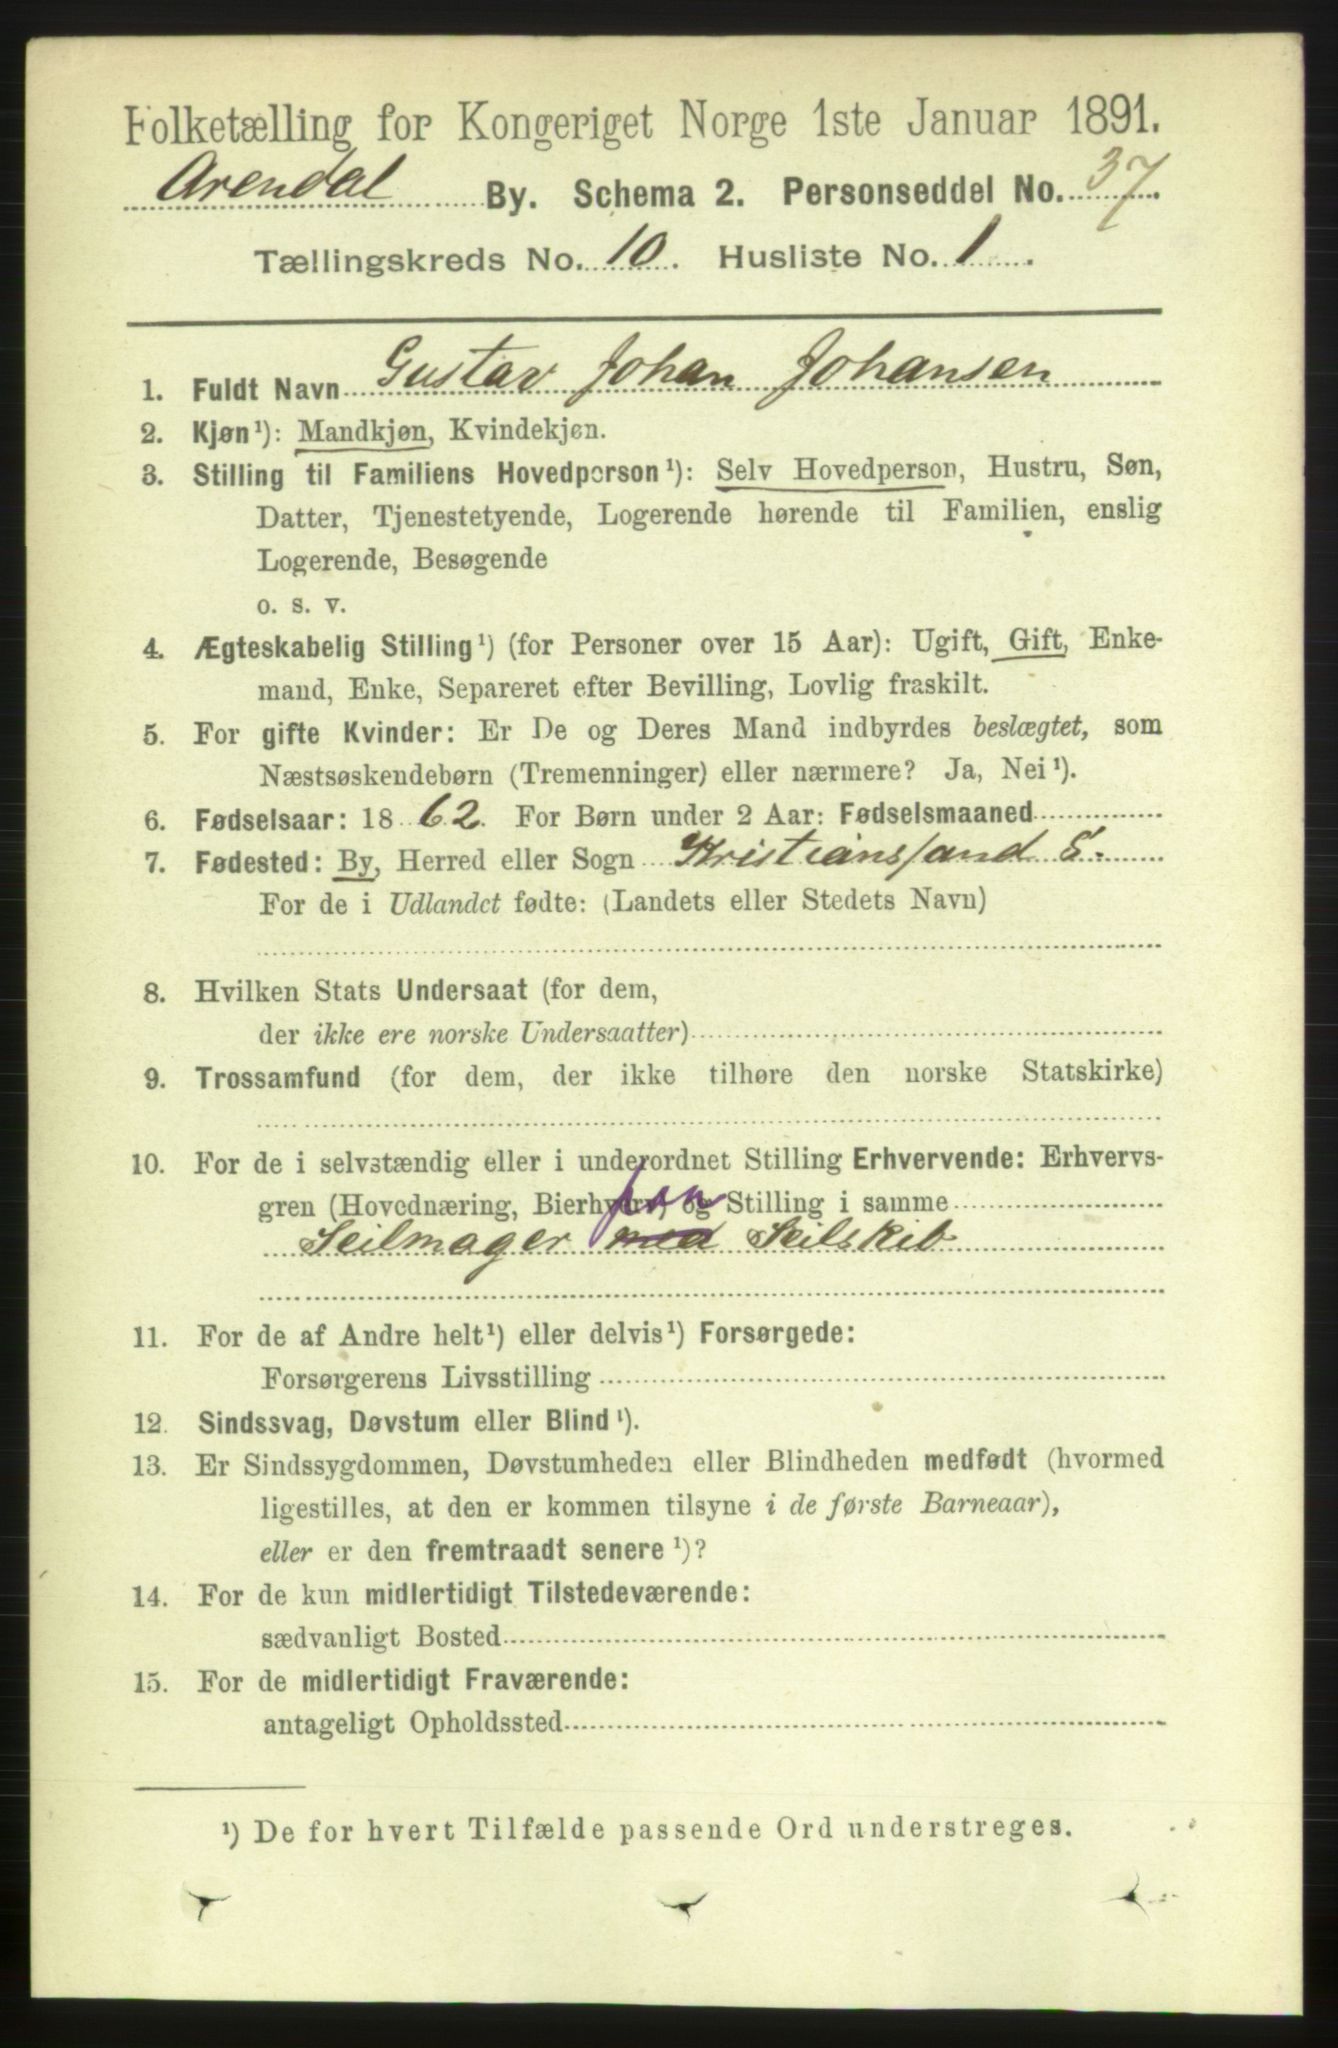 Folketælling for Kongeriget Norge 1ste Januar 1891.
Arendal By. Schema 2. Personseddel No. 37
Tællingskreds No. 10. Husliste No. 1.
1. Fuldt Navn Gustav Johan Johansen
2. Kjøn¹): Mandkjøn, Kvindekjøn.
3. Stilling til Familiens Hovedperson¹): Selv Hovedperson, Hustru, Søn,
Datter, Tjenestetyende, Logerende hørende til Familien, enslig
Logerende, Besøgende
o. s. v.
4. Ægteskabelig Stilling¹) (for Personer over 15 Aar): Ugift, Gift, Enke-
mand, Enke, Separeret efter Bevilling, Lovlig fraskilt.
5. For gifte Kvinder: Er De og Deres Mand indbyrdes beslægtet, som
Næstsøskendebørn (Tremenninger) eller nærmere? Ja, Nei¹).
6. Fødselsaar: 1862. For Børn under 2 Aar: Fødselsmaaned
7. Fødested: By, Herred eller Sogn Kristianssand S.
For de i Udlandet fødte: (Landets eller Stedets Navn)
8. Hvilken Stats Undersaat (for dem,
der ikke ere norske Undersaatter)
9. Trossamfund (for dem, der ikke tilhøre den norske Statskirke)
10. For de i selvstændig eller i underordnet Stilling Erhvervende: Erhvervs-
gren (Hovednæring, Bierhverv) og Stilling i samme
Seilmager med Seilskib
11. For de af Andre helt¹) eller delvis¹) Forsørgede:
Forsørgerens Livsstilling
12. Sindssvag, Døvstum eller Blind¹).
13. Er Sindssygdommen, Døvstumheden eller Blindheden medfødt (hvormed
ligestilles, at den er kommen tilsyne i de første Barneaar),
eller er den fremtraadt senere¹)?
14. For de kun midlertidigt Tilstedeværende:
sædvanligt Bosted
15. For de midlertidigt Fraværende:
antageligt Opholdssted
¹) De for hvert Tilfælde passende Ord understreges.